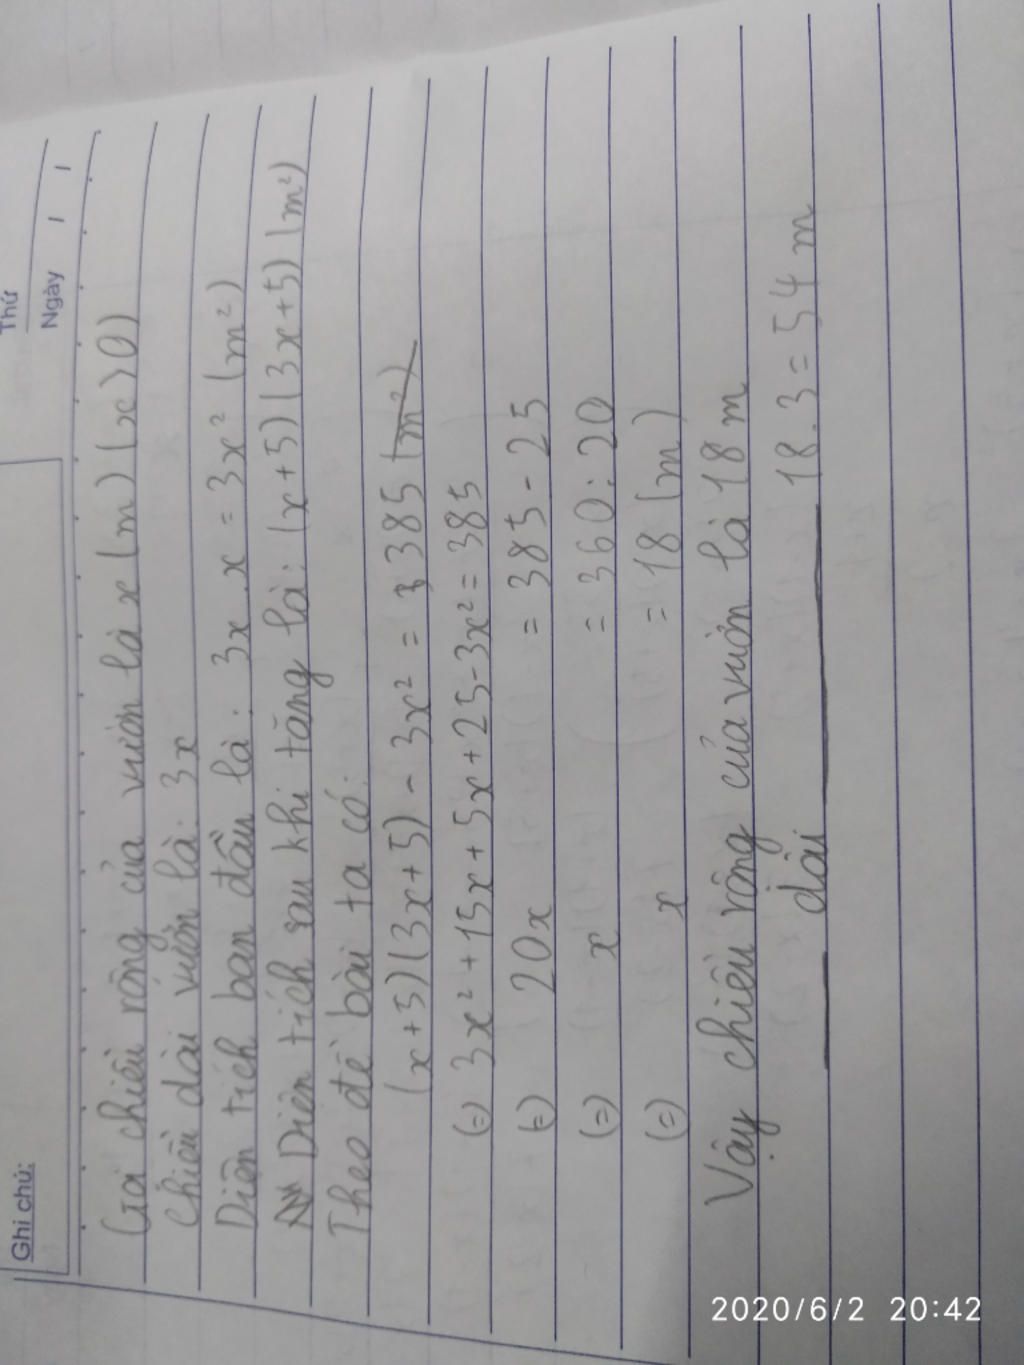 Thứ
Ngày / /
Ghi chú:
Gọi chiều rộng của vườn là x (m) (x>0)
Chiều dài vườn là: 3x
Diện tích ban đầu là: 3x.x = 3x² (m²)
Diện tích sau khi tăng là: (x+5)(3x+5) (m²)
Theo đề bài ta có:
(x+5)(3x+5) - 3x² = 385 (m²)
(=) 3x² + 15x + 5x + 25 - 3x² = 385
(=) 20x = 385 - 25
(=) x = 360 : 20
(=) x = 18 (m)
Vậy chiều rộng của vườn là 18 m
dài 18.3 = 54 m
2020/6/2 20:42